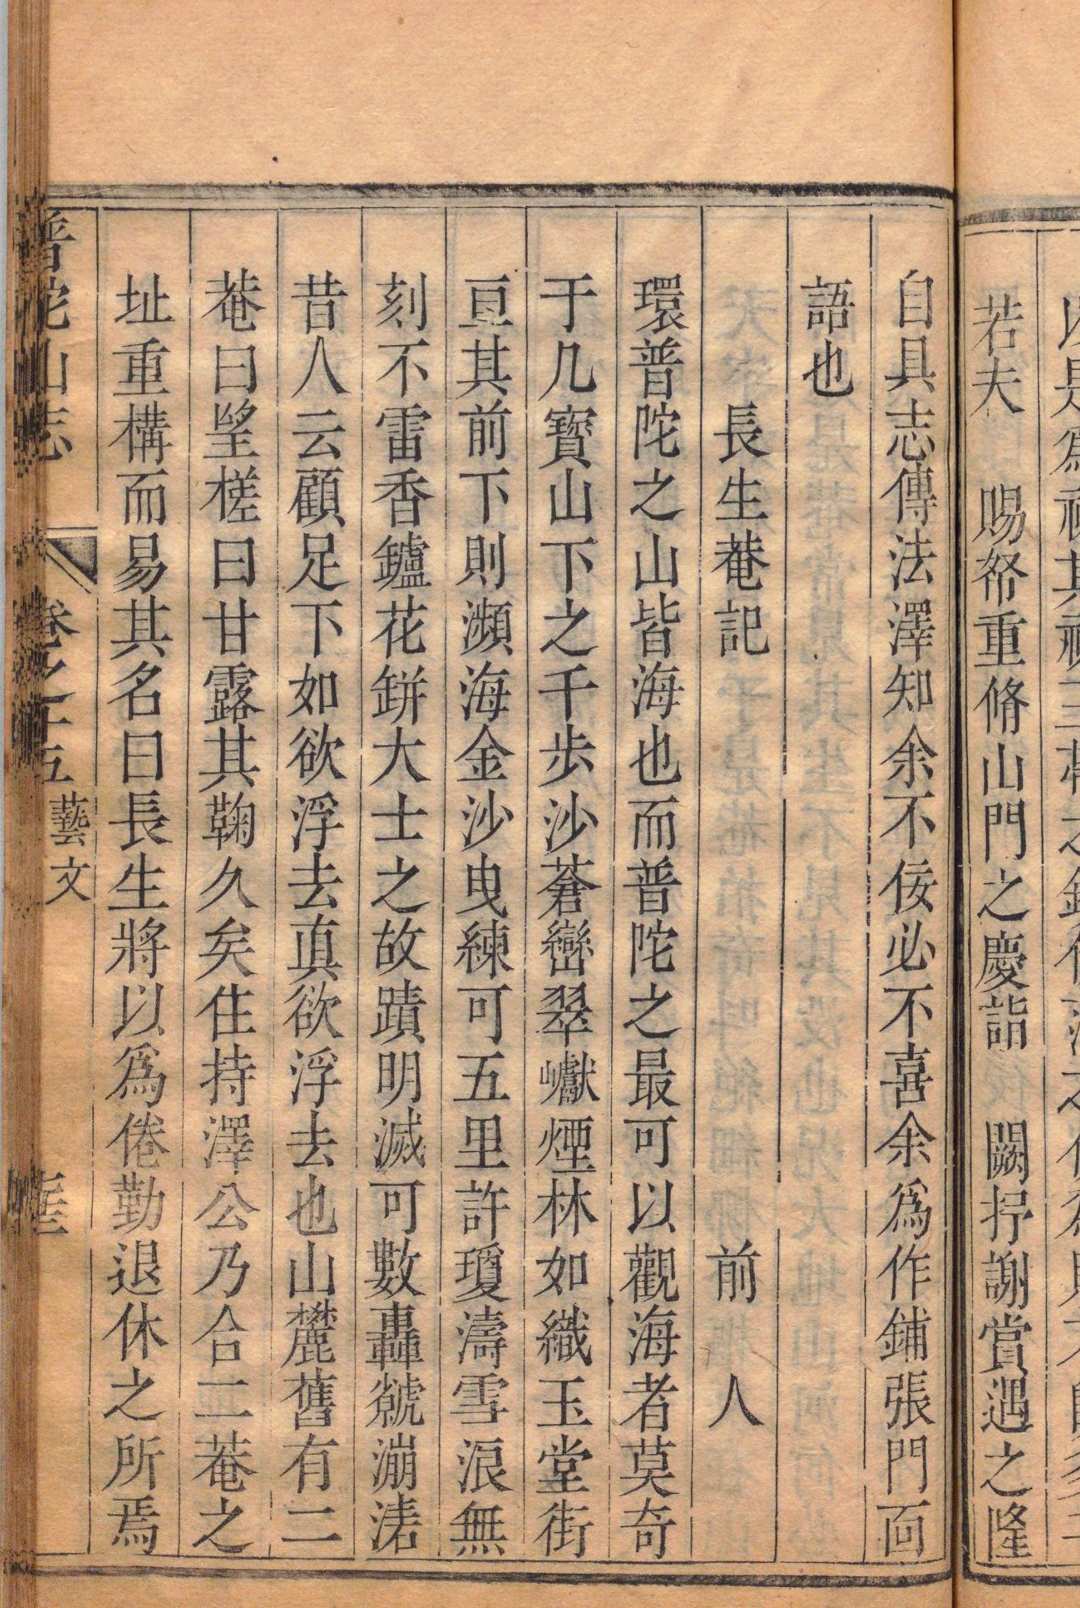 若夫 賜帑重脩山門之慶詣 闕抒謝賞遇之隆
自具志傳法澤知余不佞必不喜余爲作鋪張門面
語也
長生菴記 前 人
環普陀之山皆海也而普陀之最可以觀海者莫奇
于几寶山下之千步沙蒼巒翠巘煙林如織玉堂街
亘其前下則瀕海金沙曳練可五里許瓊濤雪浪無
刻不雷香鑪花缾大士之故蹟明滅可數轟虩漰湱
昔人云顧足下如欲浮去眞欲浮去也山麓舊有二
菴曰望槎曰甘露其鞠久矣住持澤公乃合二菴之
址重構而易其名曰長生將以爲倦勤退休之所焉
普陀山志 卷之十五 藝文